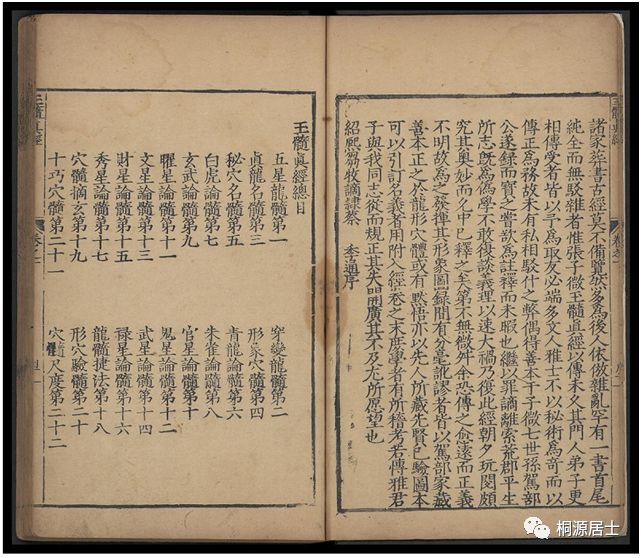 玉髓真經
諸家葬書古經莫不備覽然多為後人依倣雜亂罕有一書首尾
純全而無駁雜者惟張子微玉髓真經以傳未久其門人弟子更
相傳受者皆以子為取友必端多文人雅士不以秘術為奇而以
傳正為務故未有私相駁什之弊偶得善本于子微七世孫駕部
公遂録而寶之嘗欲為註釋而未暇也繼以罪謫離索荒郡平生
所志既為偽學不敢復談義理以速大禍乃復此經朝夕玩閱頗
究其奥妙而名中已釋之矣第不無微舛恐傳之愈遠而正義
不明故為之發揮其形象圖録間有分毫訛謬者皆以駕部家藏
善本正之於龍形穴體或有黙悟亦以先人所藏先賢已驗圖本
可以引訂名義者用附入經卷之末庶學者有所稽考若傳雅君
子與我同志從而規正其失開廣其不及尤所望也
紹熙牧謫隸蔡 季通序
玉髓真經總目
五星龍髓第一 穿變龍髓第二
真龍名髓第三 形象穴髓第四
秘穴名髓第五 青龍論髓第六
白虎論髓第七 朱雀論髓第八
玄武論髓第九 官星論髓第十
曜星論髓第十一 鬼星論髓第十二
文星論髓第十三 武星論髓第十四
財星論髓第十五 祿星論髓第十六
秀星論髓第十七 龍髓捷法第十八
穴髓摘玄第十九 形穴驗髓第二十
十巧穴髓第二十一 穴髓尺度第二十二
玉髓真經
桐源居士